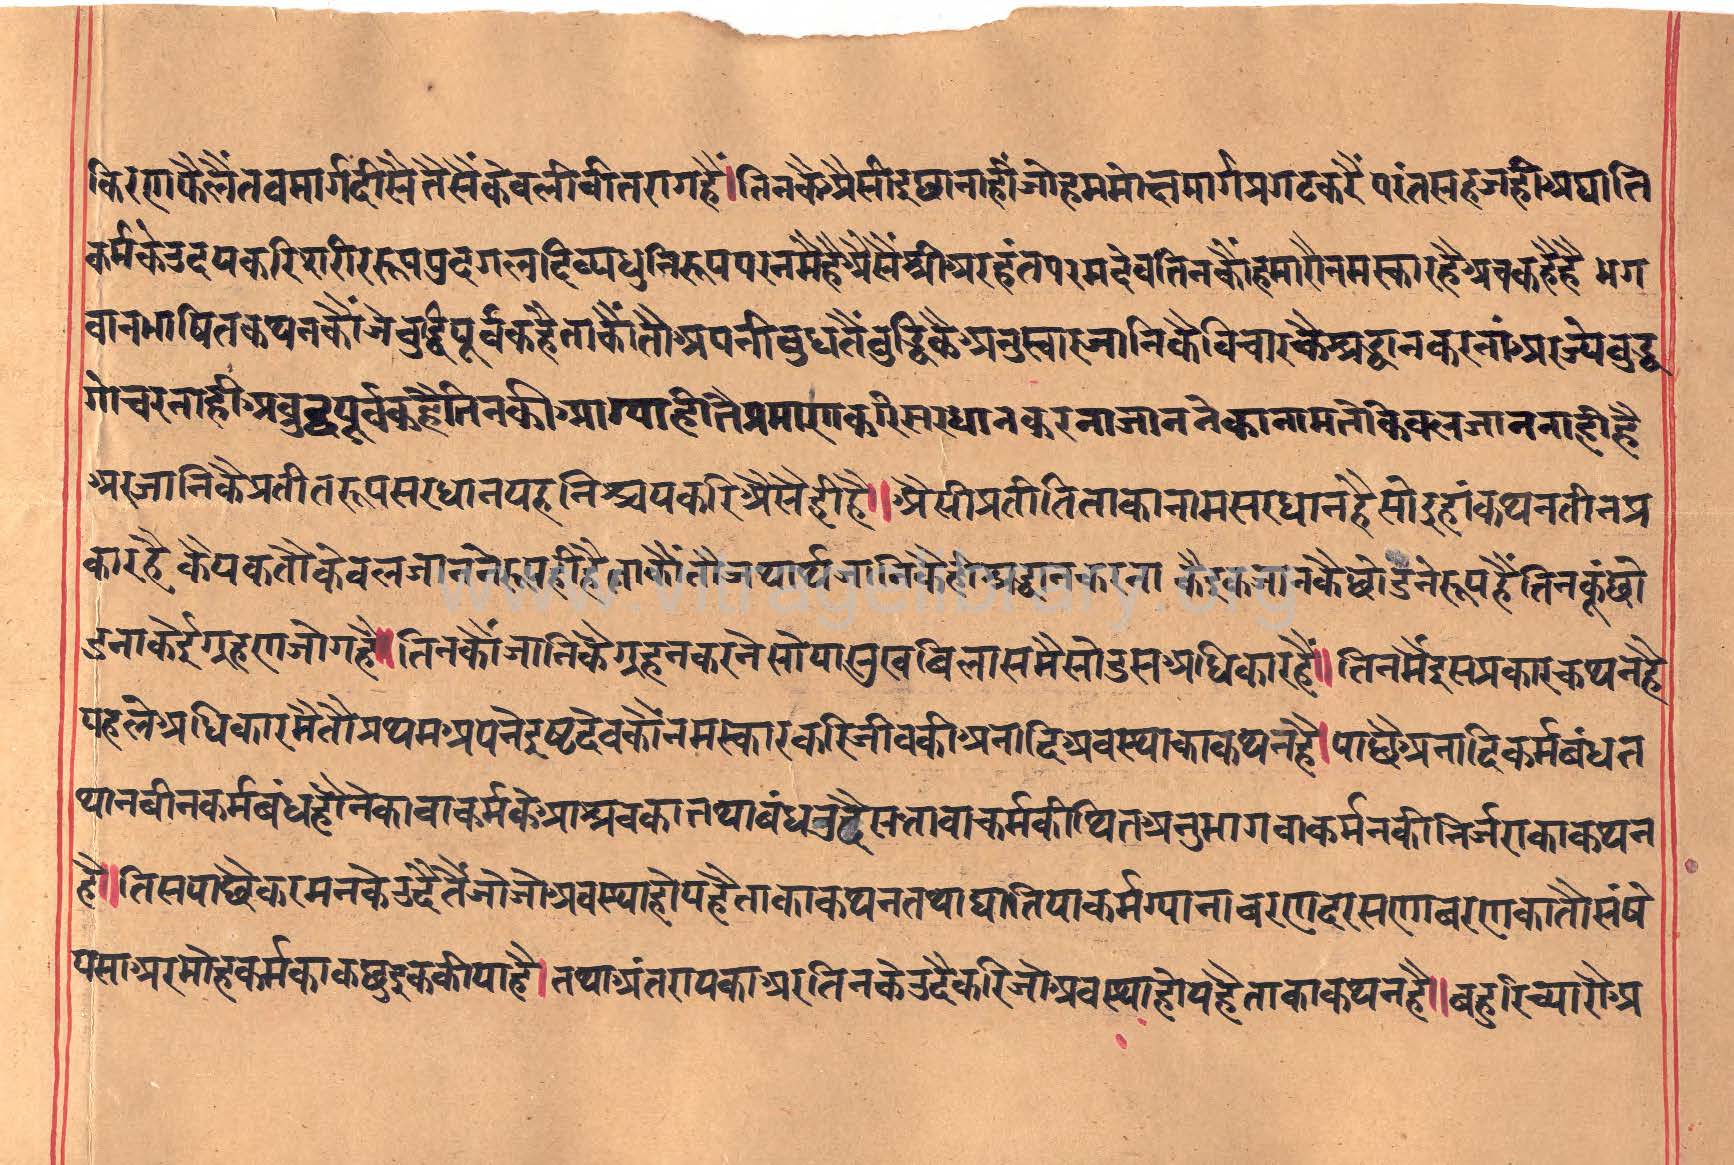 किरणफैलैंतबमार्गदीसैतैसैंकेवलीवीतरागहैं।तिनकैअैसीइछानाहींजोहममोक्षमार्गप्रगटकरैं परंतसहजहीअघाति
कर्मकेउदयकरिशरीररूपपुदगलदिव्यधुनिरूपपरनमैहैअैसैंश्रीअरहंतपरमदेवतिनकौंहमारौनमस्कारहैअबकहैहै भग
वानभाषितकथनकौंजेबुद्धिपूर्वकहैताकौंतौअपनीबुधतैंबुद्धिकैअनुस्वारजानिकैविचारकैश्रद्धानकरनांअरज्येबुद्ध
गोचरनाहीअबुद्धपूर्वकहैतिनकीआग्याहीतैप्रमाणकरिसरधानकरनाजाननेकानामतोकेवलजाननाहीहै
अरजानिकैप्रतीतरूपसरधानयहनिश्चयकरिअैसैहीहै॥अैसीप्रतीतिताकानामसरधानहैसोइहांकथनतीनप्र
कारहै कैयकतौकेवलजाननेरूपहीहैताकौंतौजथार्थजानिकैहीश्रद्धानकरना कैइकजानकैछोडनेरूपहैंतिनकूंछो
डनाकेईग्रहणजोगहै॥तिनकौंजानिकैग्रहनकरनेसोयासुखबिलासमैसोउसअधिकारहैं॥तिनमैंइसप्रकारकथनहै
पहलेअधिकारमैतौप्रथमअपनेइष्टदेवकौंनमस्कारकरिजीवकीअनादिअवस्थाकाकथनहै।पाछैअनादिकर्मबंधत
थानबीनकर्मबंधहौनेकावाकर्मकेआश्रवकातथाबंधहुवैसतावाकर्मकीथितअनुभागवाकर्मनकीनिर्जराकाकथन
है॥तिसपाछैकरमनकेउंदैतैंजोजोअवस्थाहोयहैताकाकथनतथाघातियाकर्मग्यानाबरणदरसणाबरणकातौसंषे
पसाअरमोहकर्मकाकछुइककीयाहै।तथाअंतरायकाअरतिनकेउदैकरिजोअवस्थाहोयहैताकाकथनहै॥बहुरिच्यारोअ
www.vitragelibrary.org